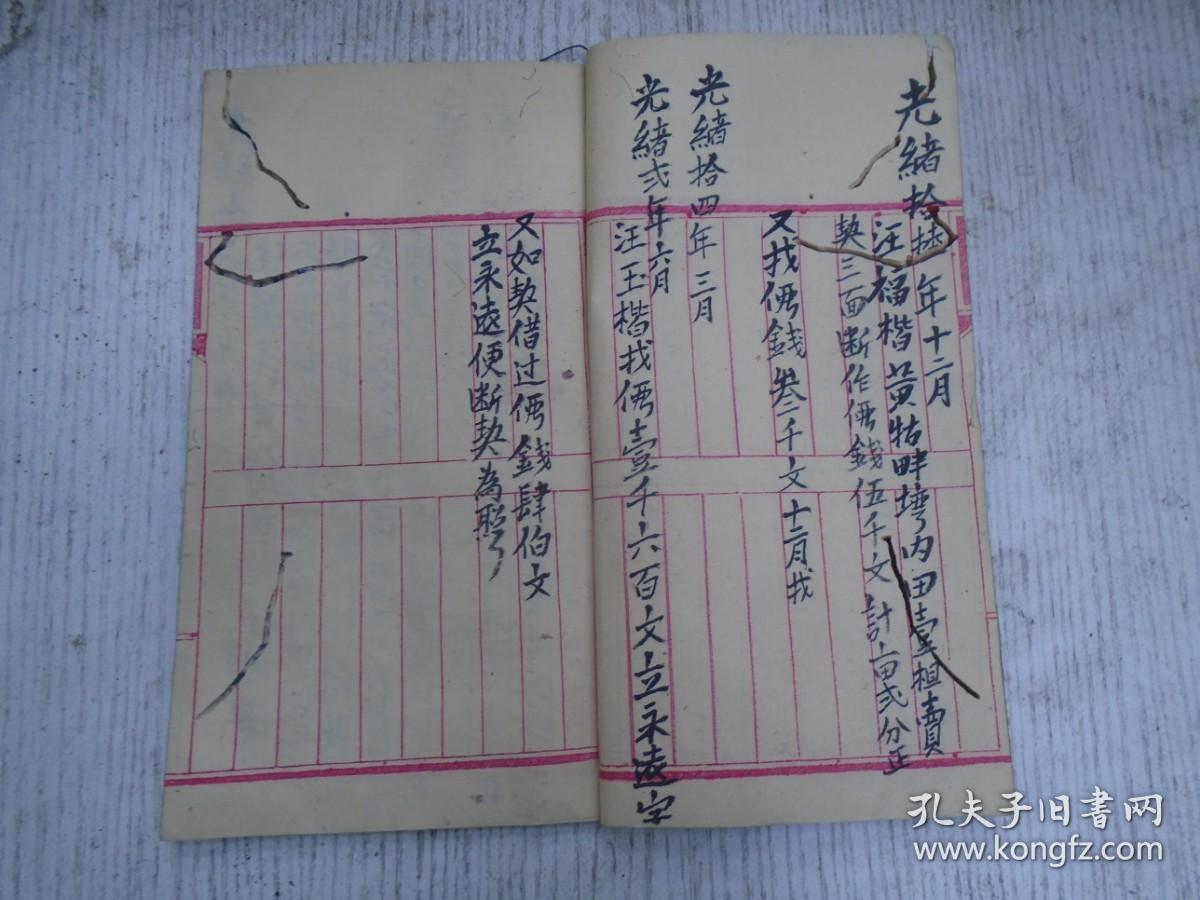 光緒拾 年十二月
汪福楷黃牯畔塆内田壹坵賣
契三面断作價錢伍千文計亩弍分正
又找價錢叁千文十二月找
光緒拾四年三月
光緒弍年六月
汪玉楷找價壹千六百文立永遠字
又如契借过價錢肆伯文
立永遠便断契為照
孔夫子旧书网
www.kongfz.com